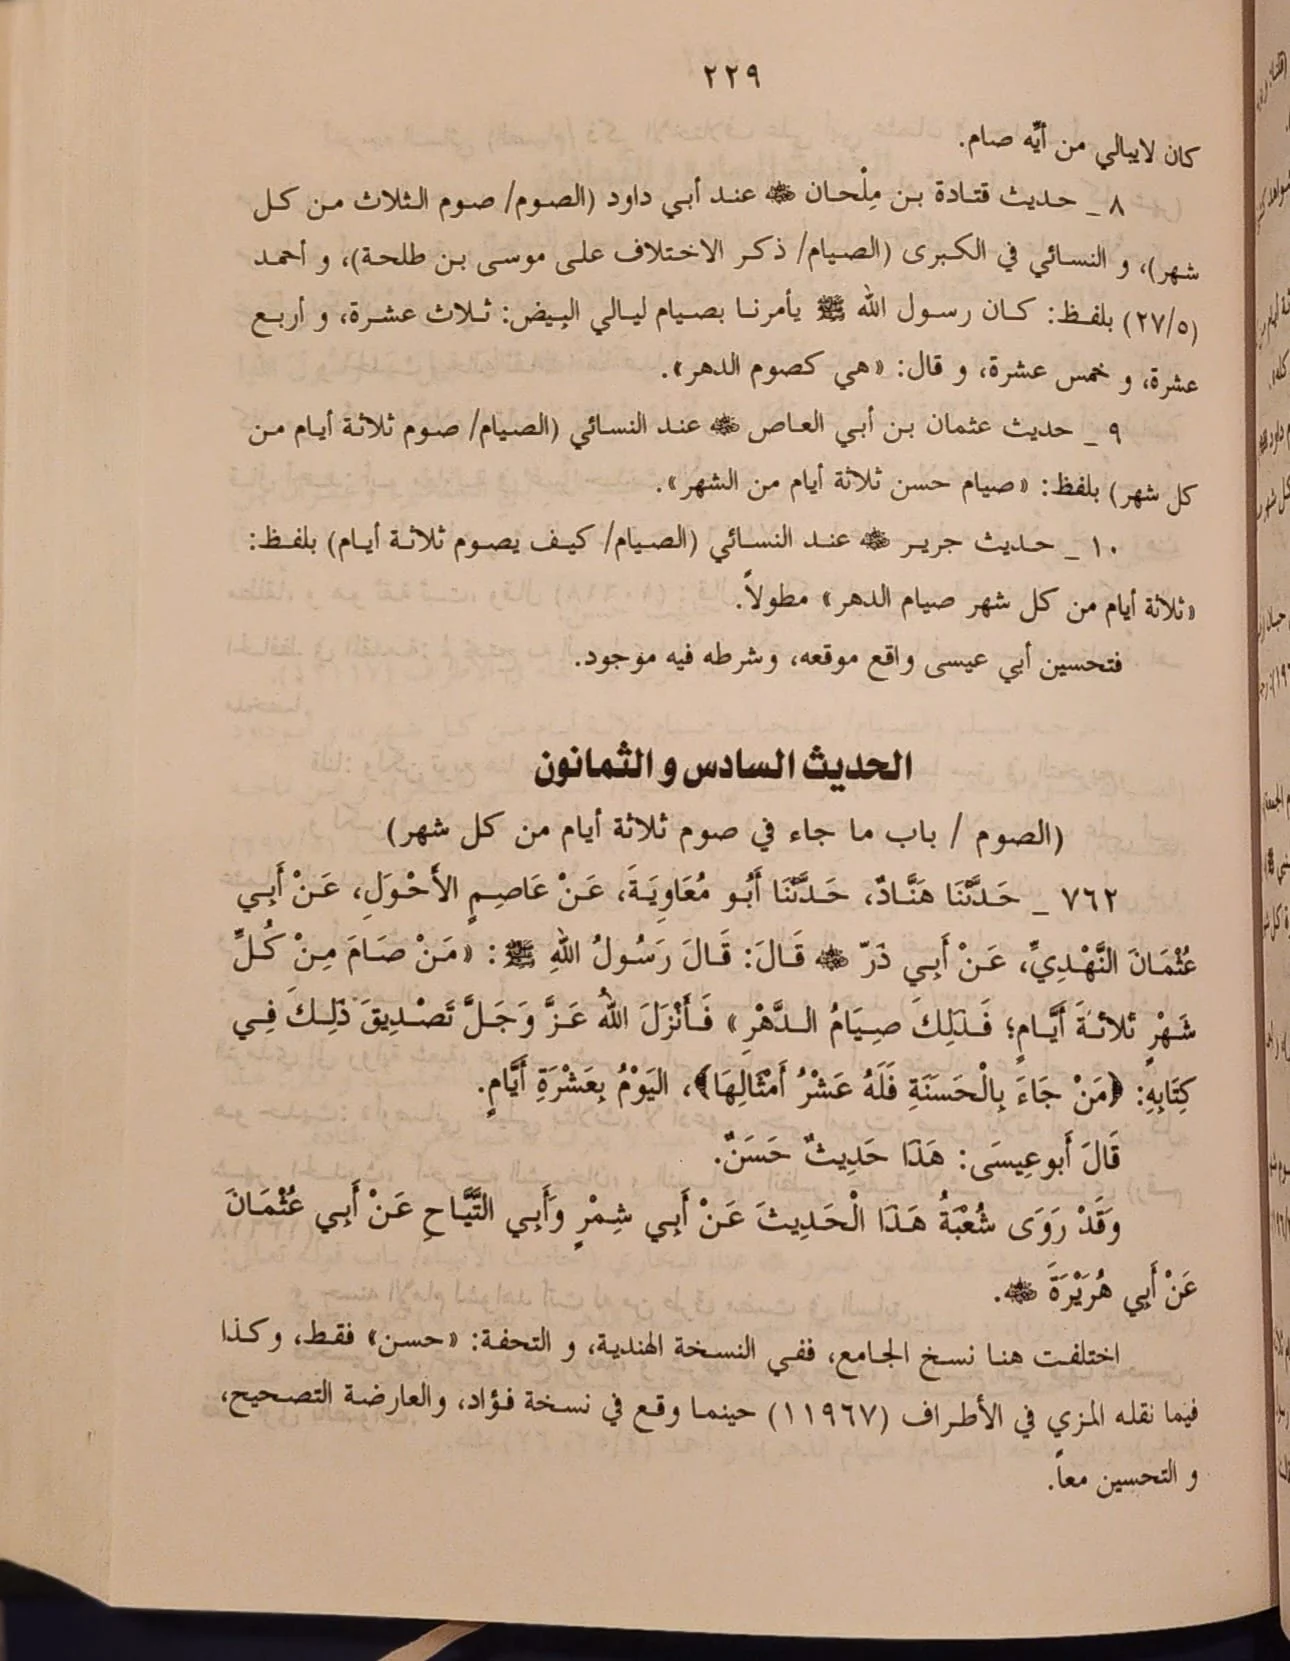 ٢٢٩
كان لايبالي من أيِّه صام.
٨ ـ حديث قتادة بن مِلْحان ﷺ عند أبي داود (الصوم/ صوم الثلاث من كل
شهر)، و النسائي في الكبرى (الصيام/ ذكر الاختلاف على موسى بن طلحة)، و أحمد
(٢٧/٥) بلفظ: كان رسول الله ﷺ يأمرنا بصيام ليالي البيض: ثلاث عشرة، و أربع
عشرة، و خمس عشرة، و قال: «هي كصوم الدهر».
٩ ـ حديث عثمان بن أبي العاص عند النسائي (الصيام/ صوم ثلاثة أيام من
كل شهر) بلفظ: «صيام حسن ثلاثة أيام من الشهر».
١٠ ـ حديث جرير عند النسائي (الصيام/ كيف يصوم ثلاثة أيام) بلفظ:
«ثلاثة أيام من كل شهر صيام الدهر» مطولاً.
فتحسين أبي عيسى واقع موقعه، وشرطه فيه موجود.
الحديث السادس و الثمانون
(الصوم / باب ما جاء في صوم ثلاثة أيام من كل شهر)
٧٦٢ ـ حَدَّثَنَا هَنَّادٌ، حَدَّثَنَا أَبُو مُعَاوِيَةَ، عَنْ عَاصِمٍ الأَحْوَلِ، عَنْ أَبِي
عُثْمَانَ النَّهْدِيِّ، عَنْ أَبِي ذَرّ قَالَ: قَالَ رَسُولُ اللهِ ﷺ: «مَنْ صَامَ مِنْ كُلِّ
شَهْرٍ ثلاثةَ أَيَّامٍ؛ فَذَلِكَ صِيَامُ الدَّهْرِ» فَأَنْزَلَ اللهُ عَزَّ وَجَلَّ تَصْدِيقَ ذَلِكَ فِي
كِتَابِهِ: ﴿مَنْ جَاءَ بِالْحَسَنَةِ فَلَهُ عَشْرُ أَمْثَالِهَا﴾، اليَوْمُ بِعَشْرَةِ أَيَّامٍ.
قَالَ أَبوعِيسَى: هَذَا حَدِيثٌ حَسَنٌ.
وَقَدْ رَوَى شُعْبَةُ هَذَا الْحَدِيثَ عَنْ أَبِي شِمْرٍ وَأَبِي التَّيَّاحِ عَنْ أَبِي عُثْمَانَ
عَنْ أَبِي هُرَيْرَةَ.
اختلفت هنا نسخ الجامع، ففي النسخة الهندية، و التحفة: «حسن» فقط، وكذا
فيما نقله المزي في الأطراف (١١٩٦٧) حينما وقع في نسخة فؤاد، والعارضة التصحيح،
و التحسين معاً.